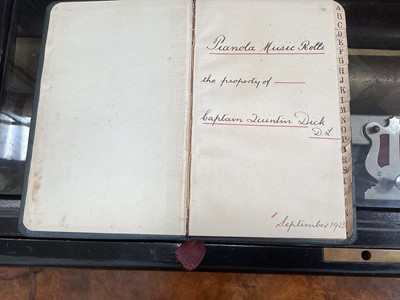 Pianola Music Rolls
the property of
Captain Quintin Dick
D.L.
September 1923
A
B
C
D
E
F
G
H
I
J
K
L
M
N
O
P
R
S